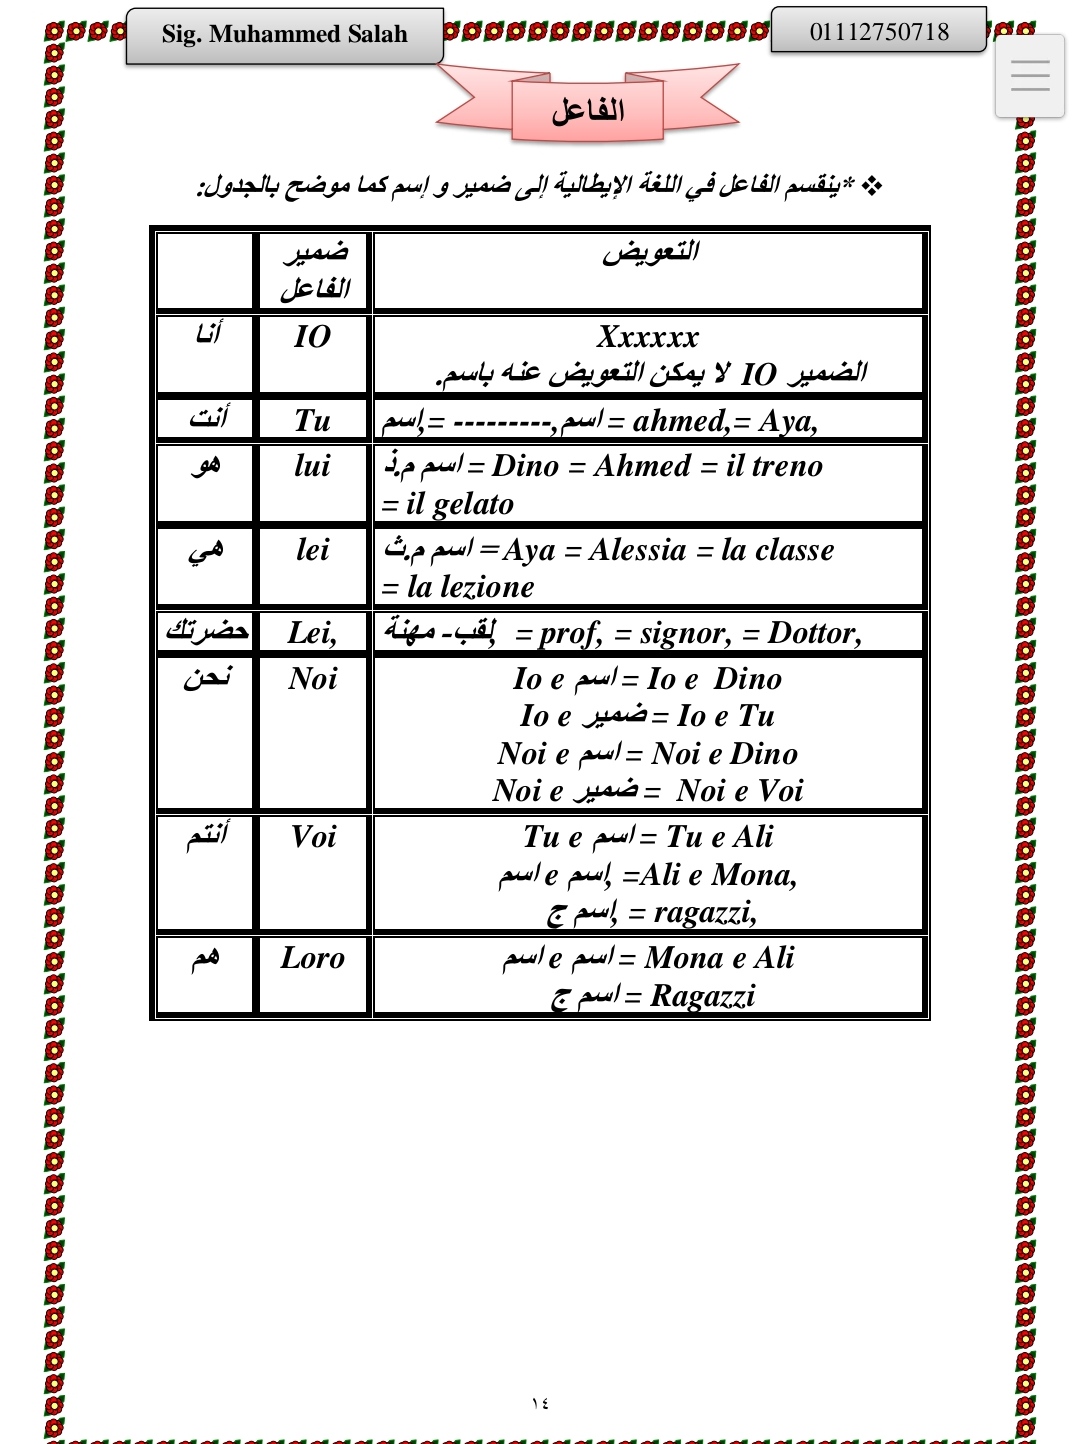 Sig. Muhammed Salah
01112750718
الفاعل
❖ *ينقسم الفاعل في اللغة الإيطالية إلى ضمير و إسم كما موضح بالجدول:
ضمير الفاعل
التعويض
أنا
IO
Xxxxxx
الضمير IO لا يمكن التعويض عنه باسم.
أنت
Tu
إسم,= ---------,اسم = ahmed,= Aya,
هو
lui
اسم م.ذ = Dino = Ahmed = il treno
= il gelato
هي
lei
اسم م.ث = Aya = Alessia = la classe
= la lezione
حضرتك
Lei,
لقب- مهنة, = prof, = signor, = Dottor,
نحن
Noi
Io e اسم = Io e Dino
Io e ضمير = Io e Tu
Noi e اسم = Noi e Dino
Noi e ضمير = Noi e Voi
أنتم
Voi
Tu e اسم = Tu e Ali
اسم e إسم, =Ali e Mona,
إسم ج, = ragazzi,
هم
Loro
اسم e اسم = Mona e Ali
اسم ج = Ragazzi
١٤